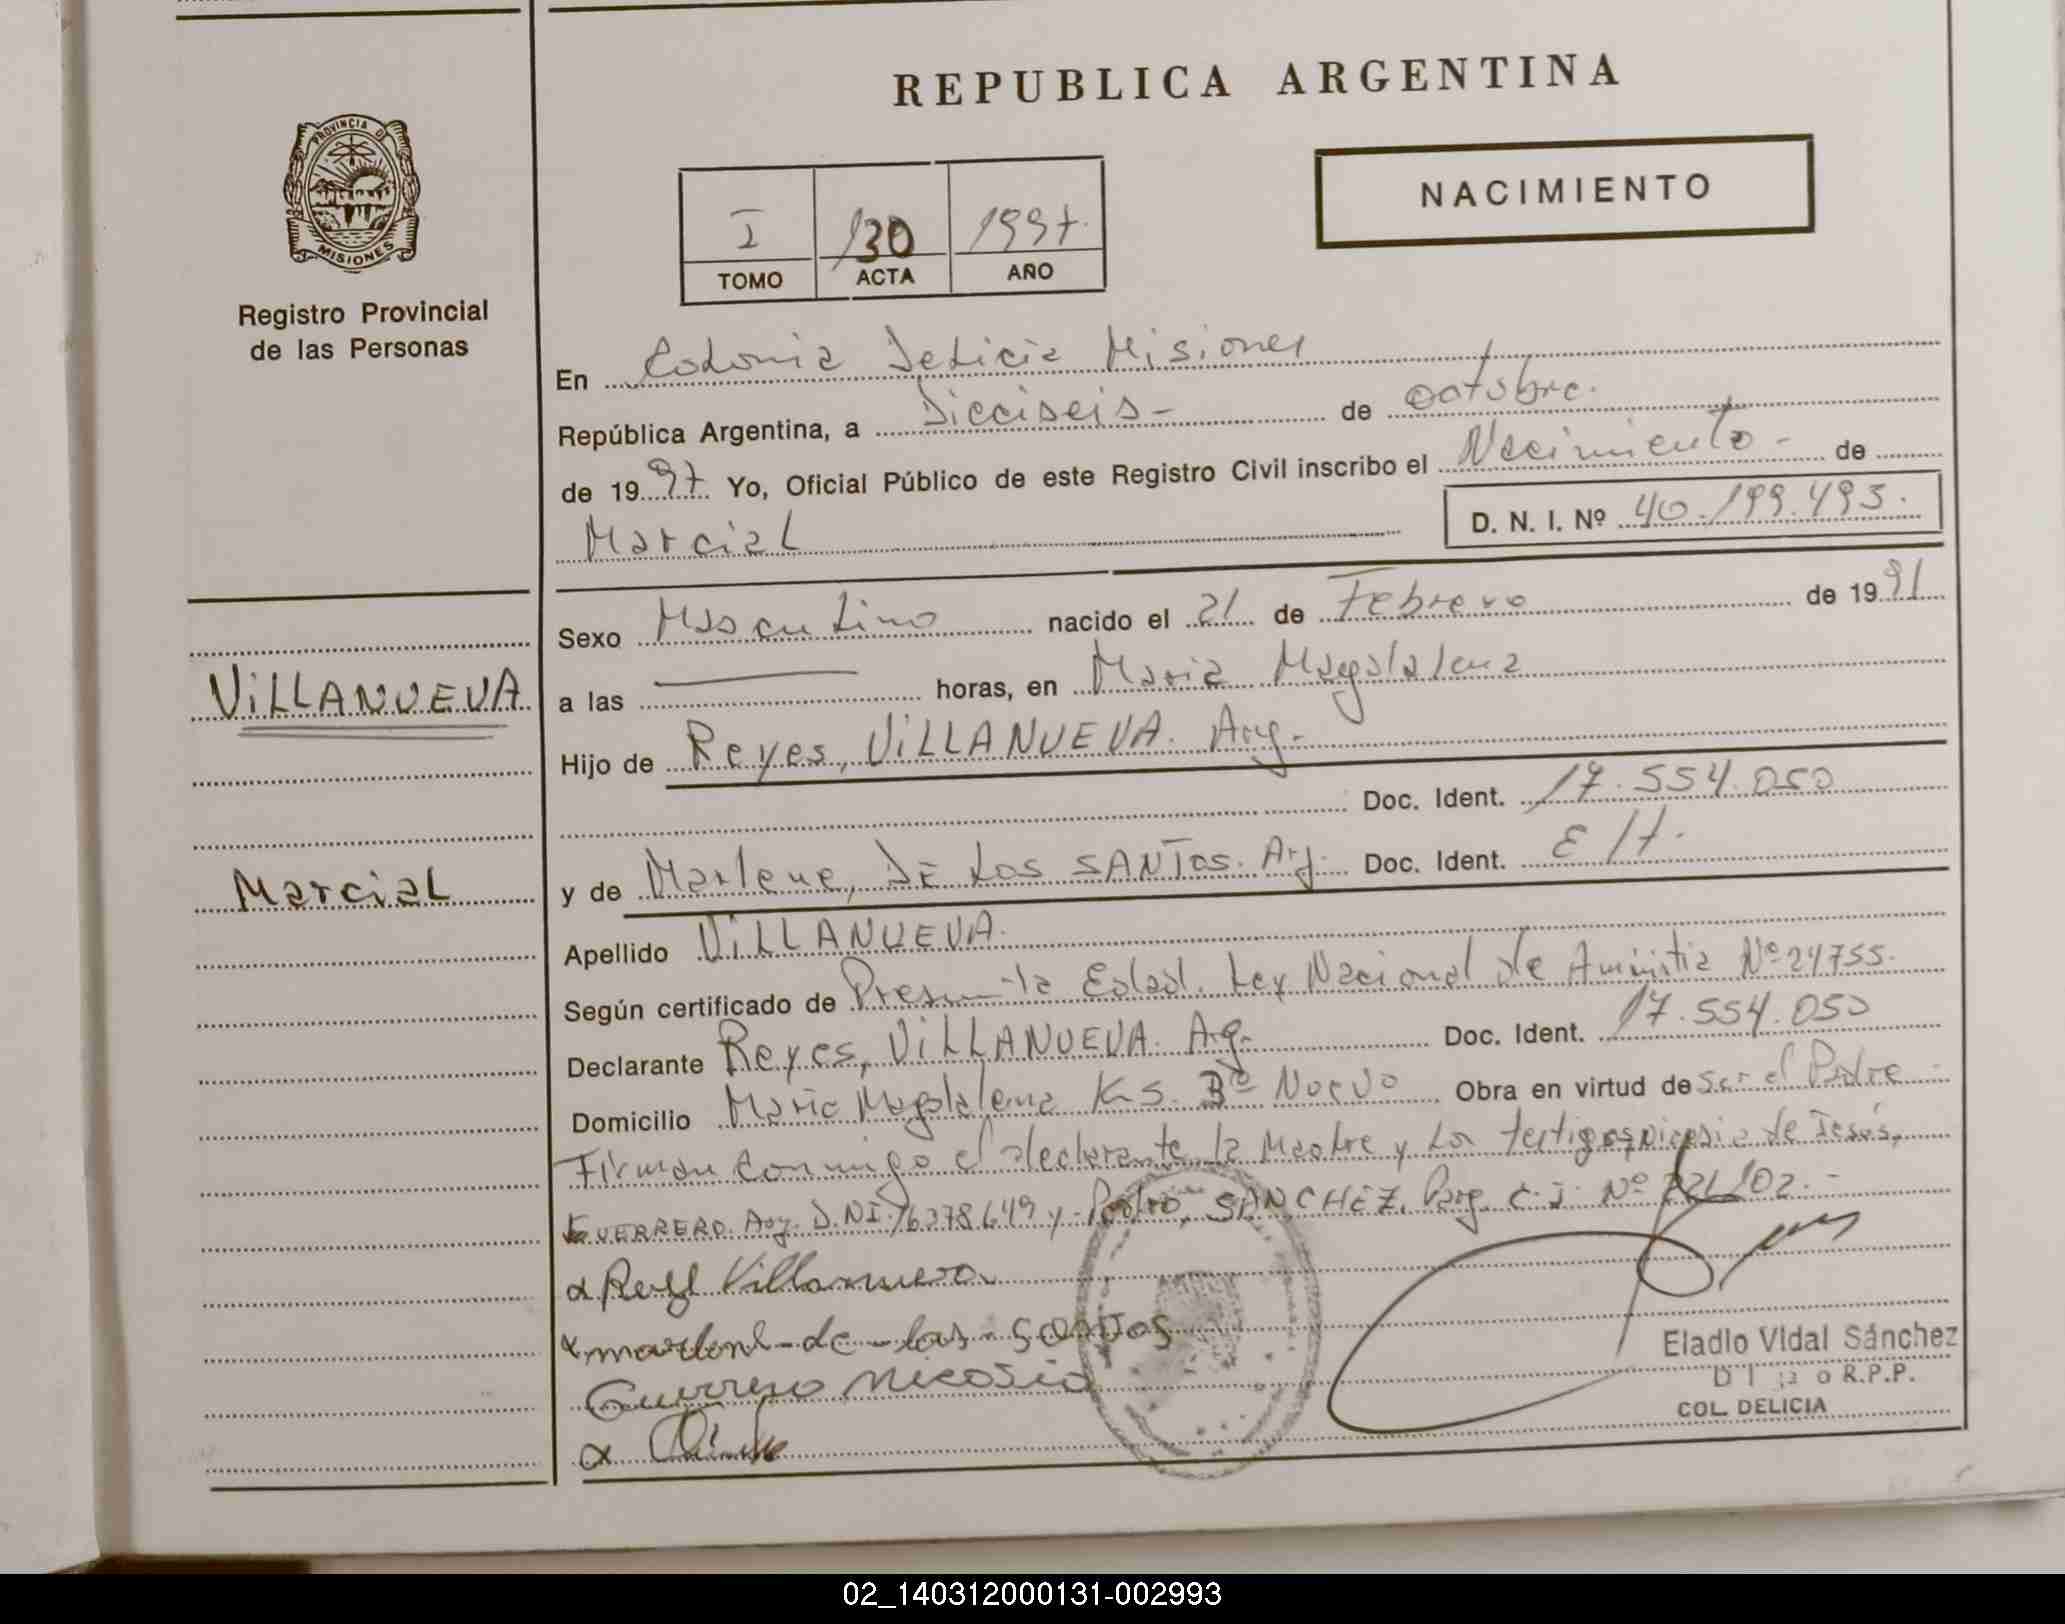 PROVINCIA D
MISIONES
Registro Provincial
de las Personas
VILLANUEVA
Marcial
REPUBLICA ARGENTINA
NACIMIENTO
I 130 1997.
TOMO ACTA AÑO
En Colonia Delicia Misiones
República Argentina, a Dieciseis - de octubre.
de 1997. Yo, Oficial Público de este Registro Civil inscribo el Nacimiento - de
Marcial D. N. I. Nº 40.199.493.
Sexo Masculino nacido el 21 de Febrero de 1991
a las horas, en Maria Magdalena
Hijo de Reyes, VILLANUEVA. Arg.
Doc. Ident. 17.554.050
y de Marlene, DE LOS SANTOS. Arg. Doc. Ident. E/t.
Apellido VILLANUEVA.
Según certificado de Presunta Edad. Ley Nacional de Amnistia Nº 24755.
Declarante Reyes, VILLANUEVA. Arg. Doc. Ident. 17.554.050
Domicilio Maria Magdalena K 5. Bº Nuevo Obra en virtud de ser el Padre -
Firman conmigo el declarante la Madre y Los testigos Nicasia de Jesús,
GUERRERO. Arg. D.N.I. 16378649 y - Pedro, SANCHEZ, Parg. C.I. Nº 221102. -
x Reyes Villanueva
x marlene - de - los - santos
Guerrero Nicasia
x
Eladio Vidal Sánchez
R.P.P.
COL. DELICIA
02_140312000131-002993